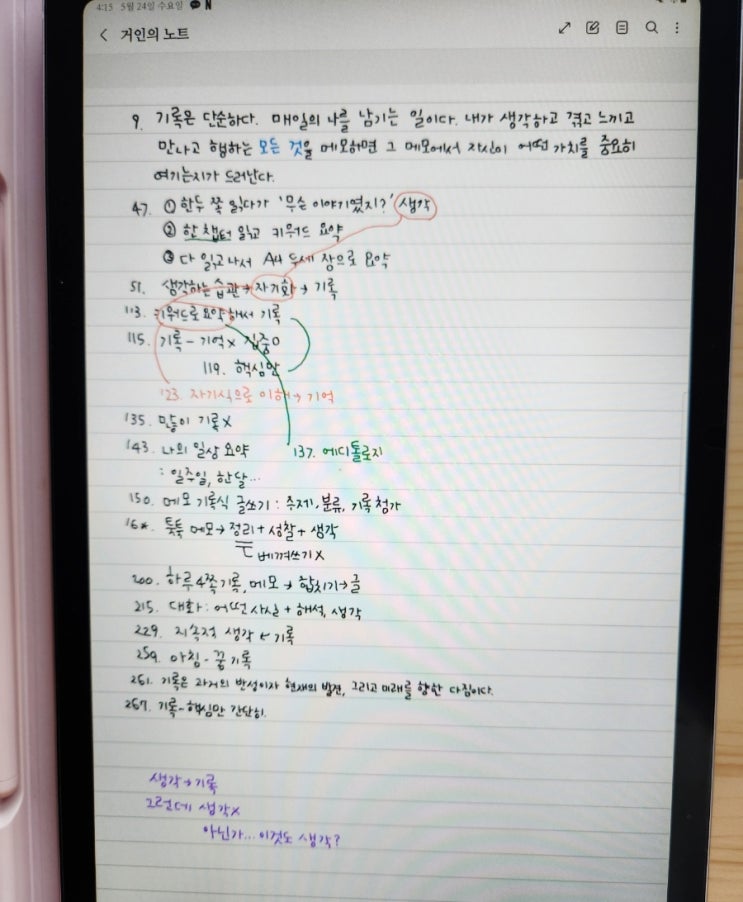 4:15 5월 24일 수요일 N
거인의 노트
9. 기록은 단순하다. 매일의 나를 남기는 일이다. 내가 생각하고 겪고 느끼고
만나고 행하는 모든 것을 메모하면 그 메모에서 자신이 어떤 가치를 중요히
여기는지가 드러난다.
47. ① 한두 쪽 읽다가 '무슨 이야기였지?' 생각
② 한 챕터 읽고 키워드 요약
③ 다 읽고 나서 A4 두세 장으로 요약
51. 생각하는 습관 → 자기화 → 기록
113. 키워드로 요약해서 기록
115. 기록 - 기억x 집중o
119. 핵심만
123. 자기식으로 이해 → 기억
135. 만능이 기록x
143. 나의 일상 요약
137. 에디톨로지
: 일주일, 한달...
150. 메모 기록식 글쓰기 : 주제, 분류, 기록 첨가
16*. 툭툭 메모 → 정리 + 성찰 + 생각
베껴쓰기 x
200. 하루 4쪽 기록, 메모 → 합치기 → 글
215. 대화 : 어떤 사실 + 해석, 생각
229. 지속적 생각 ← 기록
259. 아침 - 꿈 기록
261. 기록은 과거의 반성이자 현재의 발견, 그리고 미래를 향한 다짐이다.
267. 기록 - 핵심만 간단히.
생각 → 기록
그런데 생각x
아닌가... 이것도 생각?